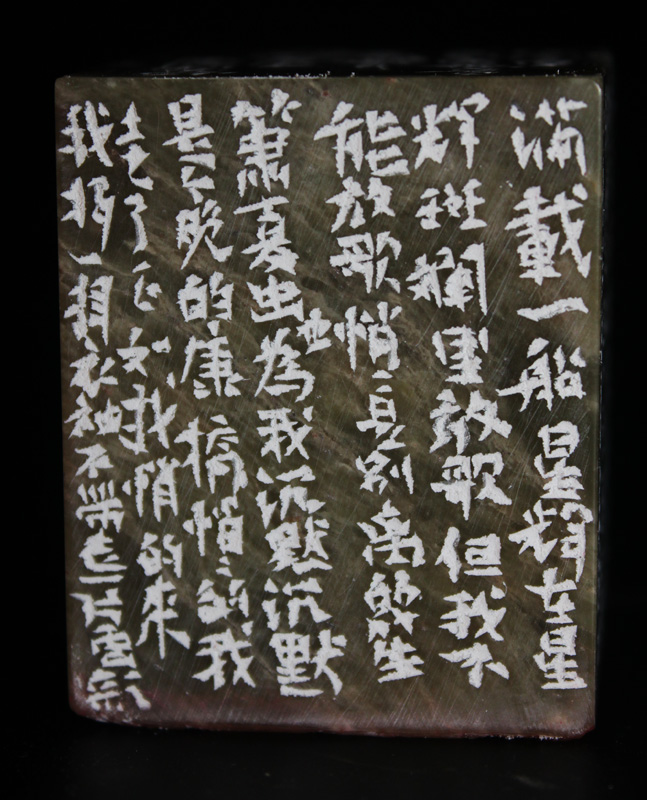 滿載一船星辉在星
辉斑斓里放歌但我不
能放歌悄〻是别离的笙
箫夏虫也為我沉默沉默
是今晚的康橋悄〻的我
走了正如我悄〻的來
我挥一挥衣袖不帶走一片雲彩